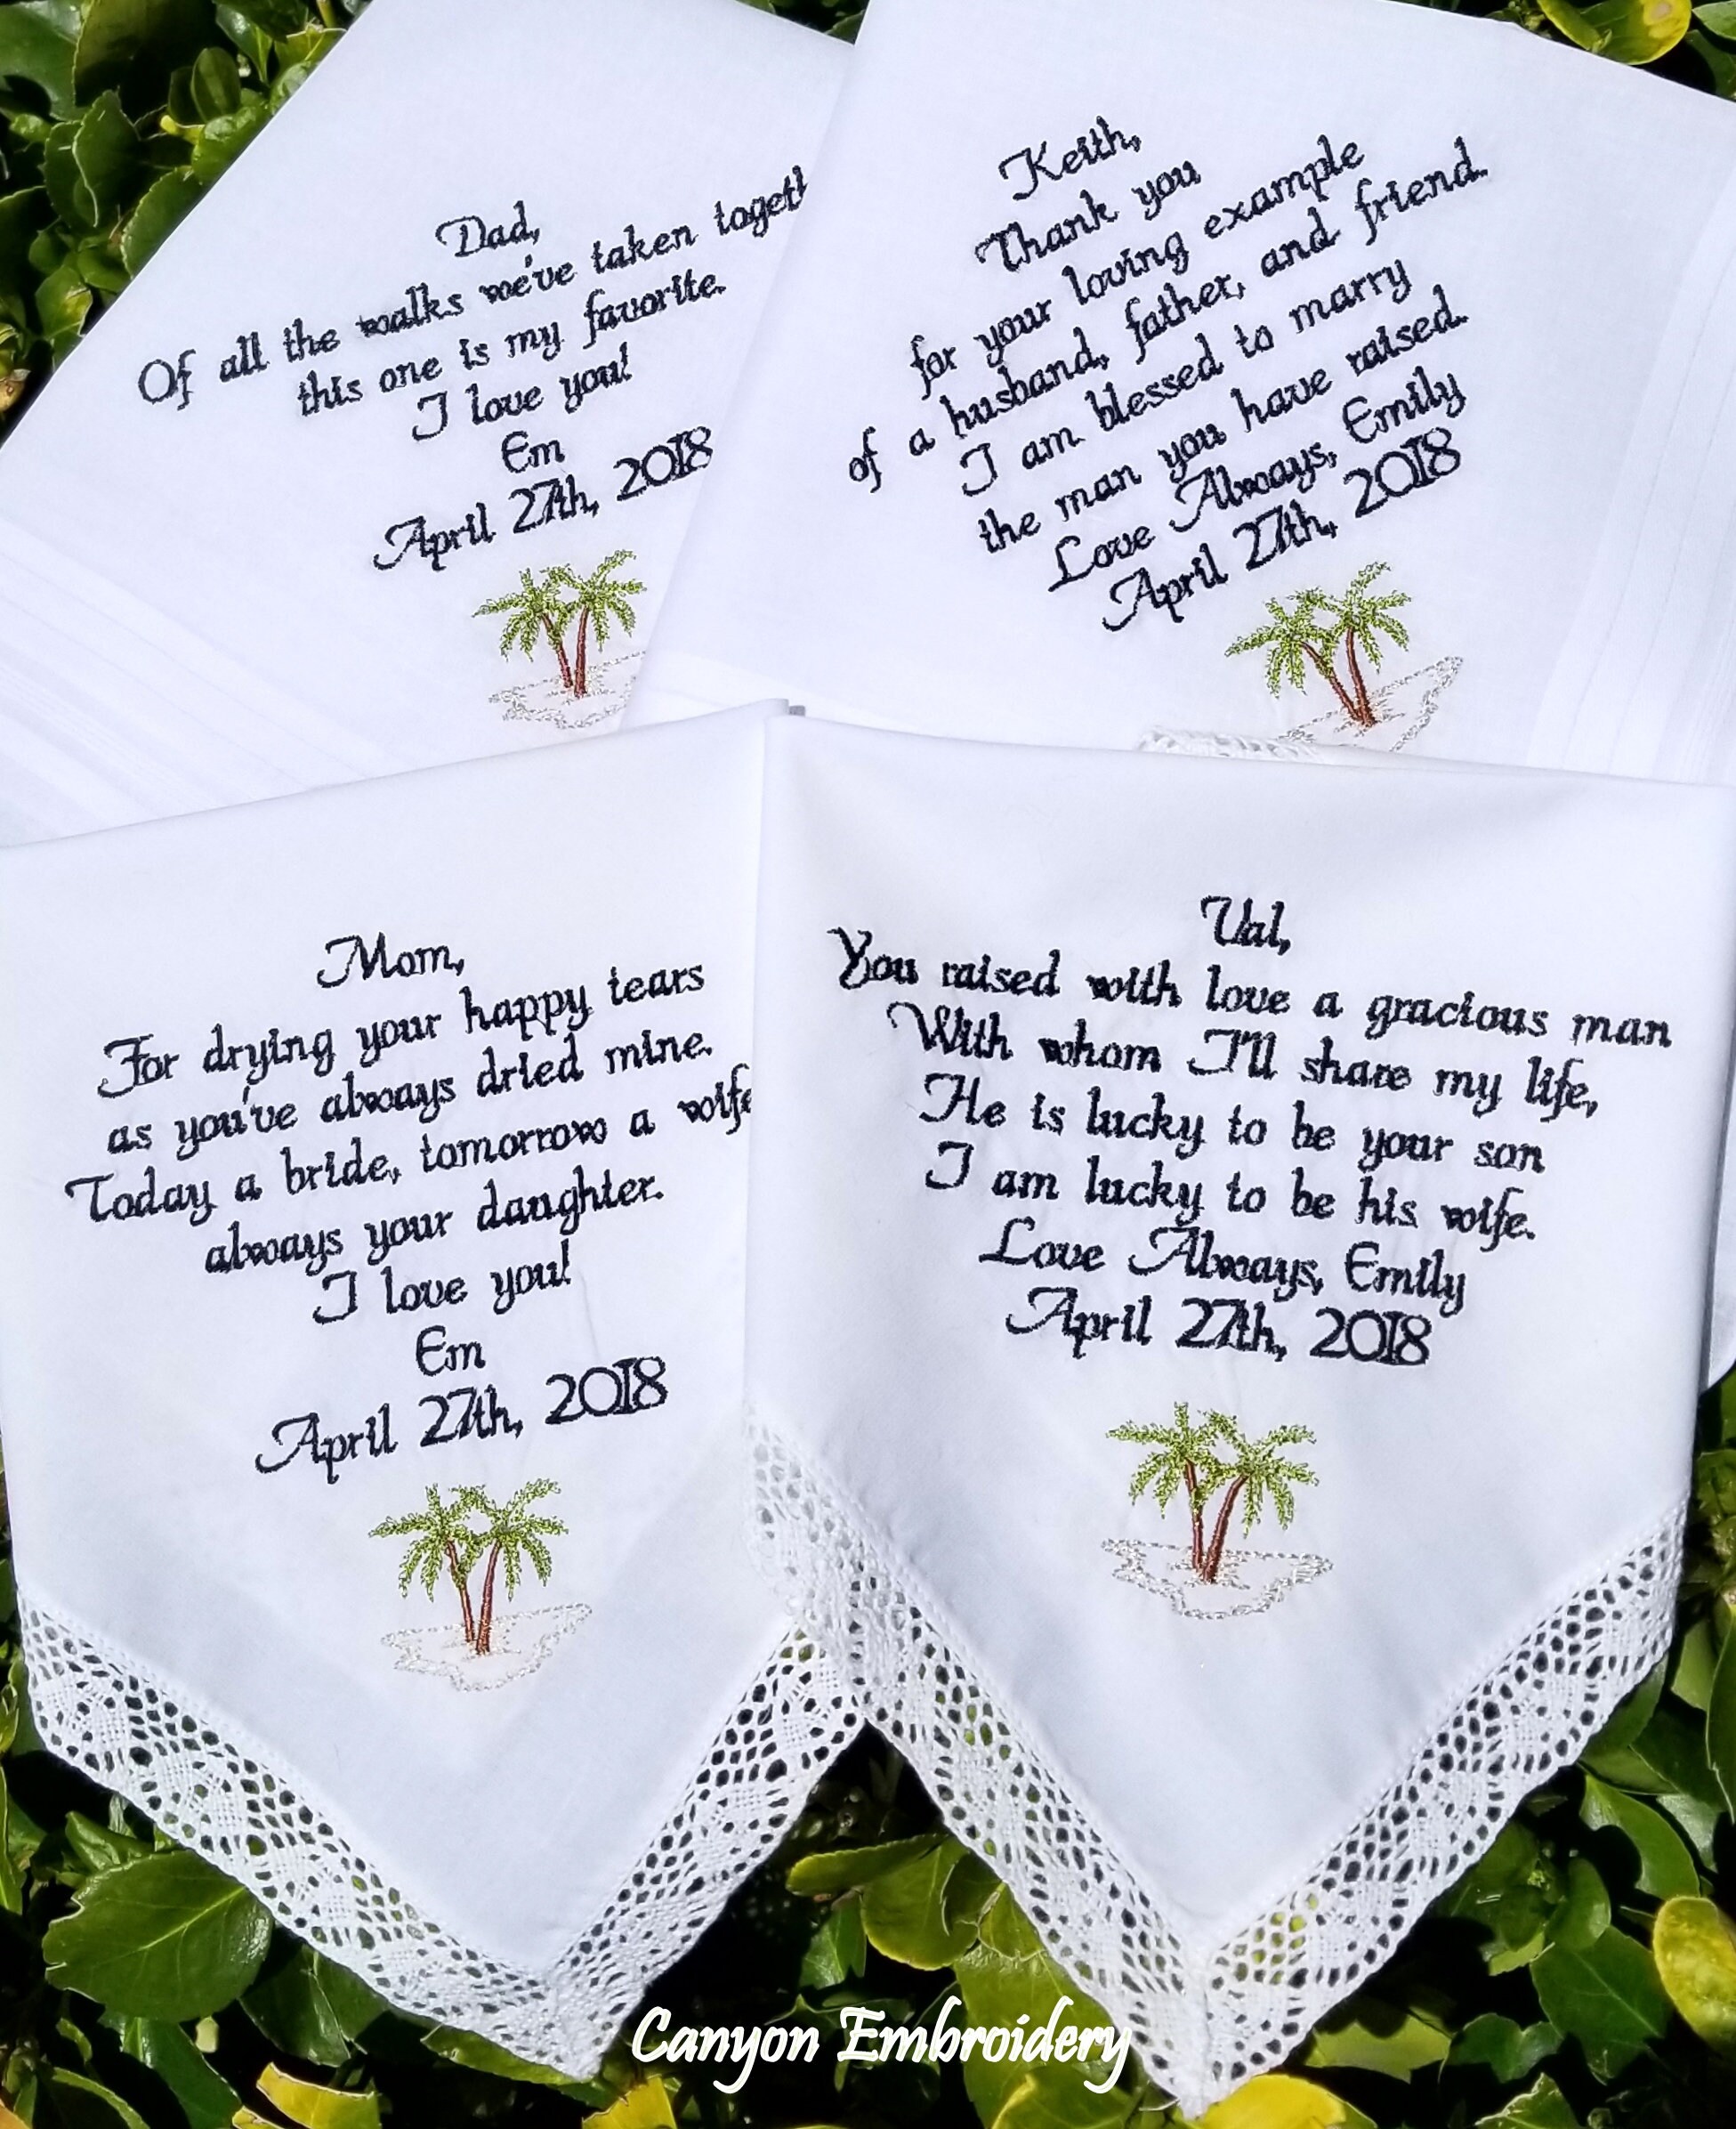 Dad,
Of all the walks we've taken togeth
this one is my favorite.
I love you!
Em
April 27th, 2018
Keith,
Thank you
for your loving example
of a husband, father, and friend.
I am blessed to marry
the man you have raised.
Love Always, Emily
April 27th, 2018
Mom,
For drying your happy tears
as you've always dried mine.
Today a bride, tomorrow a wife
always your daughter.
I love you!
Em
April 27th, 2018
Val,
You raised with love a gracious man
With whom I'll share my life,
He is lucky to be your son
I am lucky to be his wife.
Love Always, Emily
April 27th, 2018
Canyon Embroidery